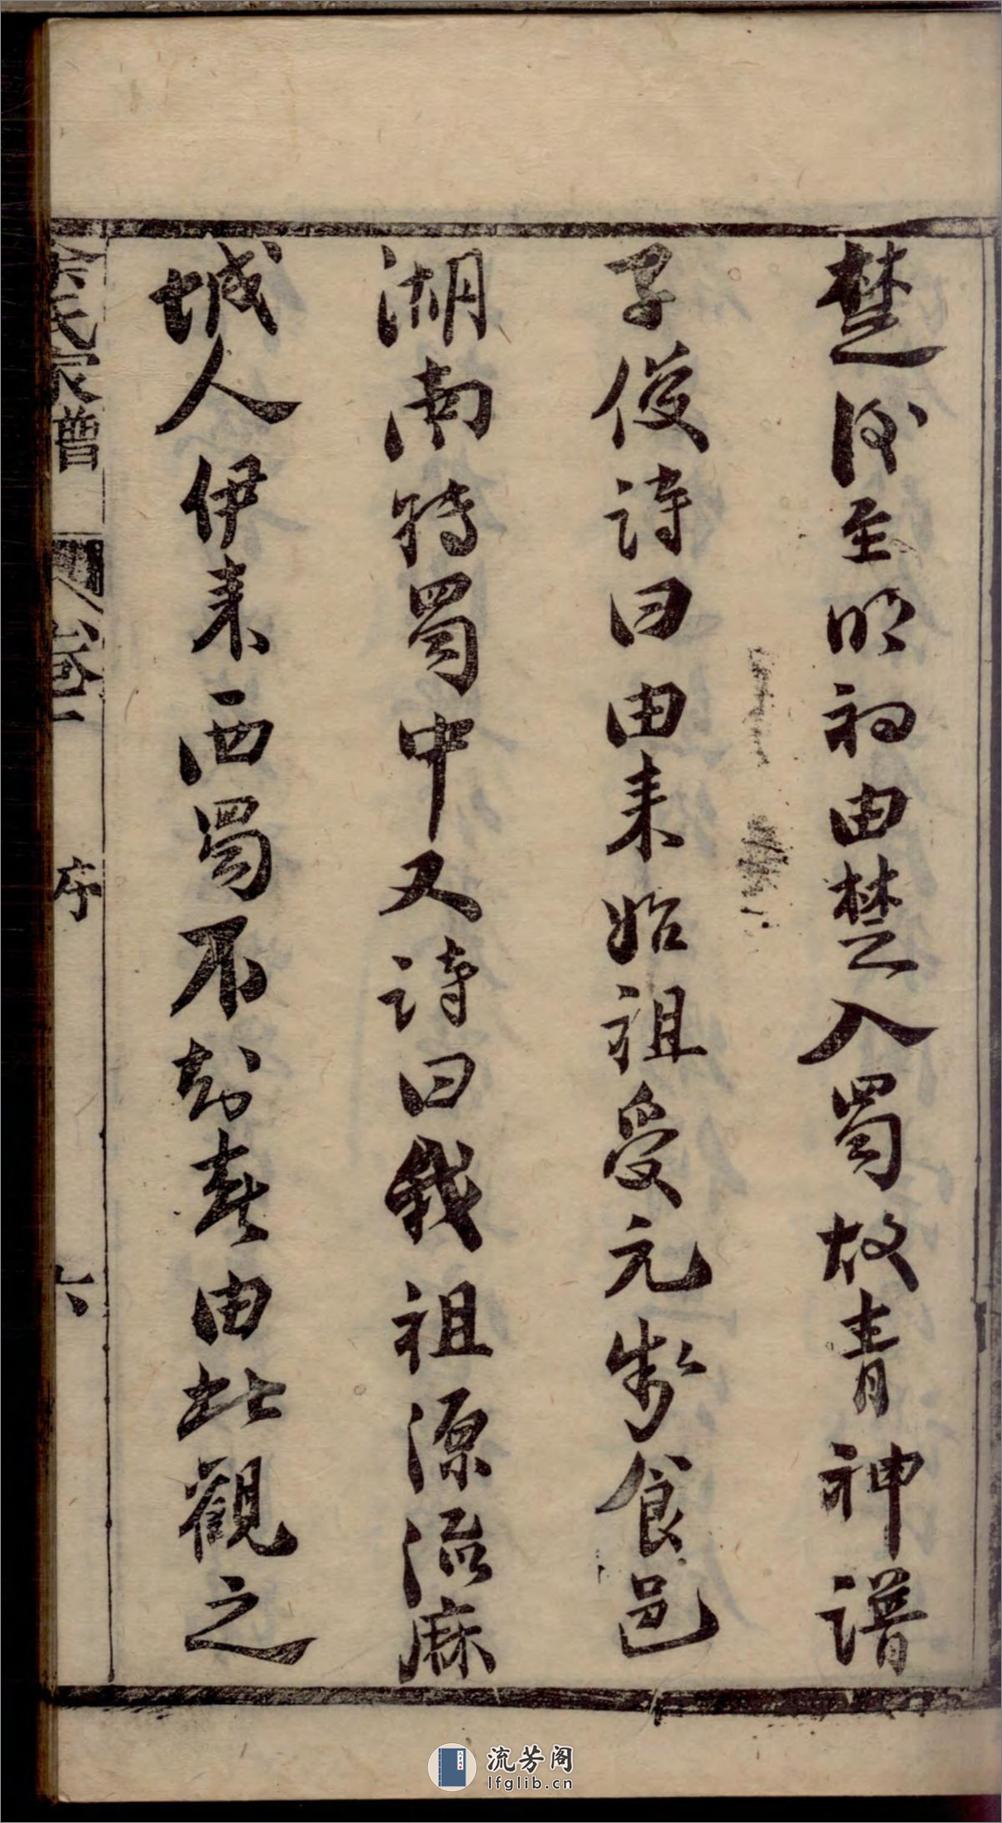 楚後至明初由楚入蜀故青神譜
子俊詩曰由来始祖受元功食邑
湖南特蜀中又詩曰我祖源流麻
城人伊来西蜀不知春由此觀之
余氏家譜 卷一 序 六
流芳阁
lfglib.cn